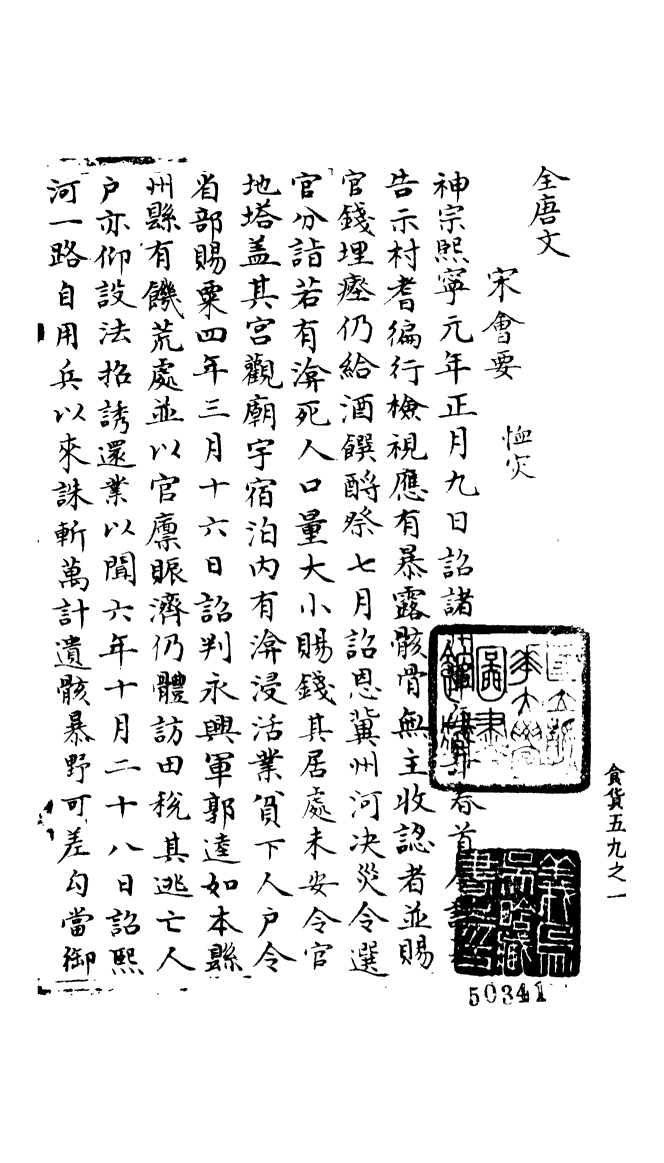 全唐文
宋會要
恤災
神宗熙寧元年正月九日詔諸春首
告示村耆徧行檢視應有暴露骸骨無主收認者並賜
官錢埋瘞仍給酒饌酹祭七月詔恩冀州河决災令選
官分詣若有渰死人口量大小賜錢其居處未安令官
地塔盖其宮觀廟宇宿泊内有渰浸活業貧下人户令
省部賜粟四年三月十六日詔判永興軍郭逵如本縣
州縣有饑荒處並以官廪賑濟仍體訪田稅其逃亡人
户亦仰設法招誘還業以聞六年十月二十八日詔熙
河一路自用兵以來誅斬萬計遺骸暴野可差勾當御
食貨五九之一
50341